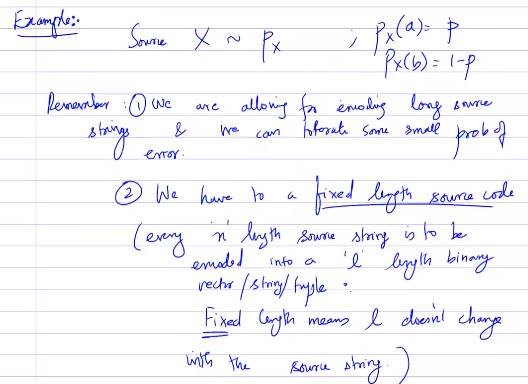 Example:-
Source X ~ p_X ; p_X(a) = p
p_X(b) = 1-p
Remember : ① We are allowing for encoding long source
strings & we can tolerate some small prob of
error.
② We have to a fixed length source code
(every 'n' length source string is to be
encoded into a 'l' length binary
vector/string/tuple .
Fixed length means l doesn't change
with the source string.)